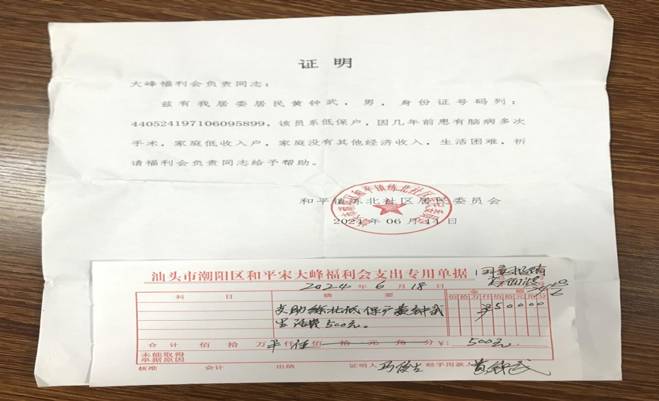 证明
大峰福利会负责同志：
兹有我居委居民黄钟武，男，身份证号码列：
440524197106095899，该员系低保户，因几年前患有脑病多次
手术，家庭低收入户，家庭没有其他经济收入，生活困难，祈
请福利会负责同志给予帮助。
和平镇练北社区居民委员会
2024年06月11日
汕头市潮阳区和平宋大峰福利会支出专用单据
2024年6月18日
科目 摘要 金额
支助练北低保户黄钟武
生活费500元。
50000
合计 佰 拾 万 仟 伍佰 拾 元 角 分 ¥：500元
未能取得
单据原因
核准 会计 出纳 证明人 经手园款人 黄钟武